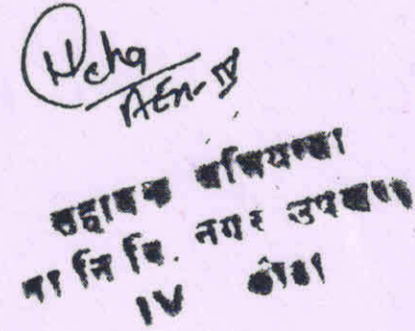 Neha
AEn-IV
सहायक अभियन्ता
सा नि वि. नगर उपखण्ड
IV कोटा